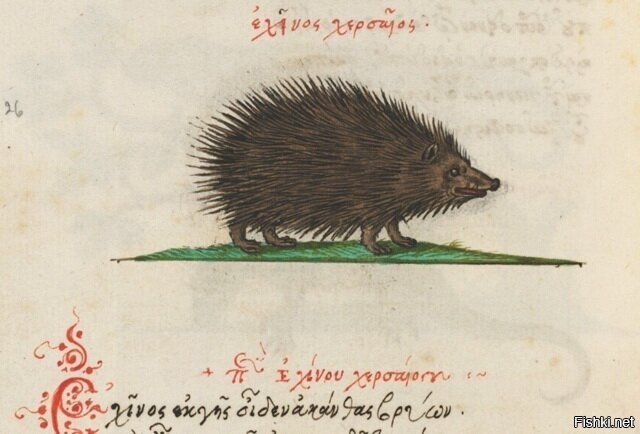 ἐχῖνος χερσαῖος·
26
Ἐχίνου χερσαίου
Ἐχῖνος ἐκ γῆς οἶδεν ἀκάνθας βρύων.
Fishki.net